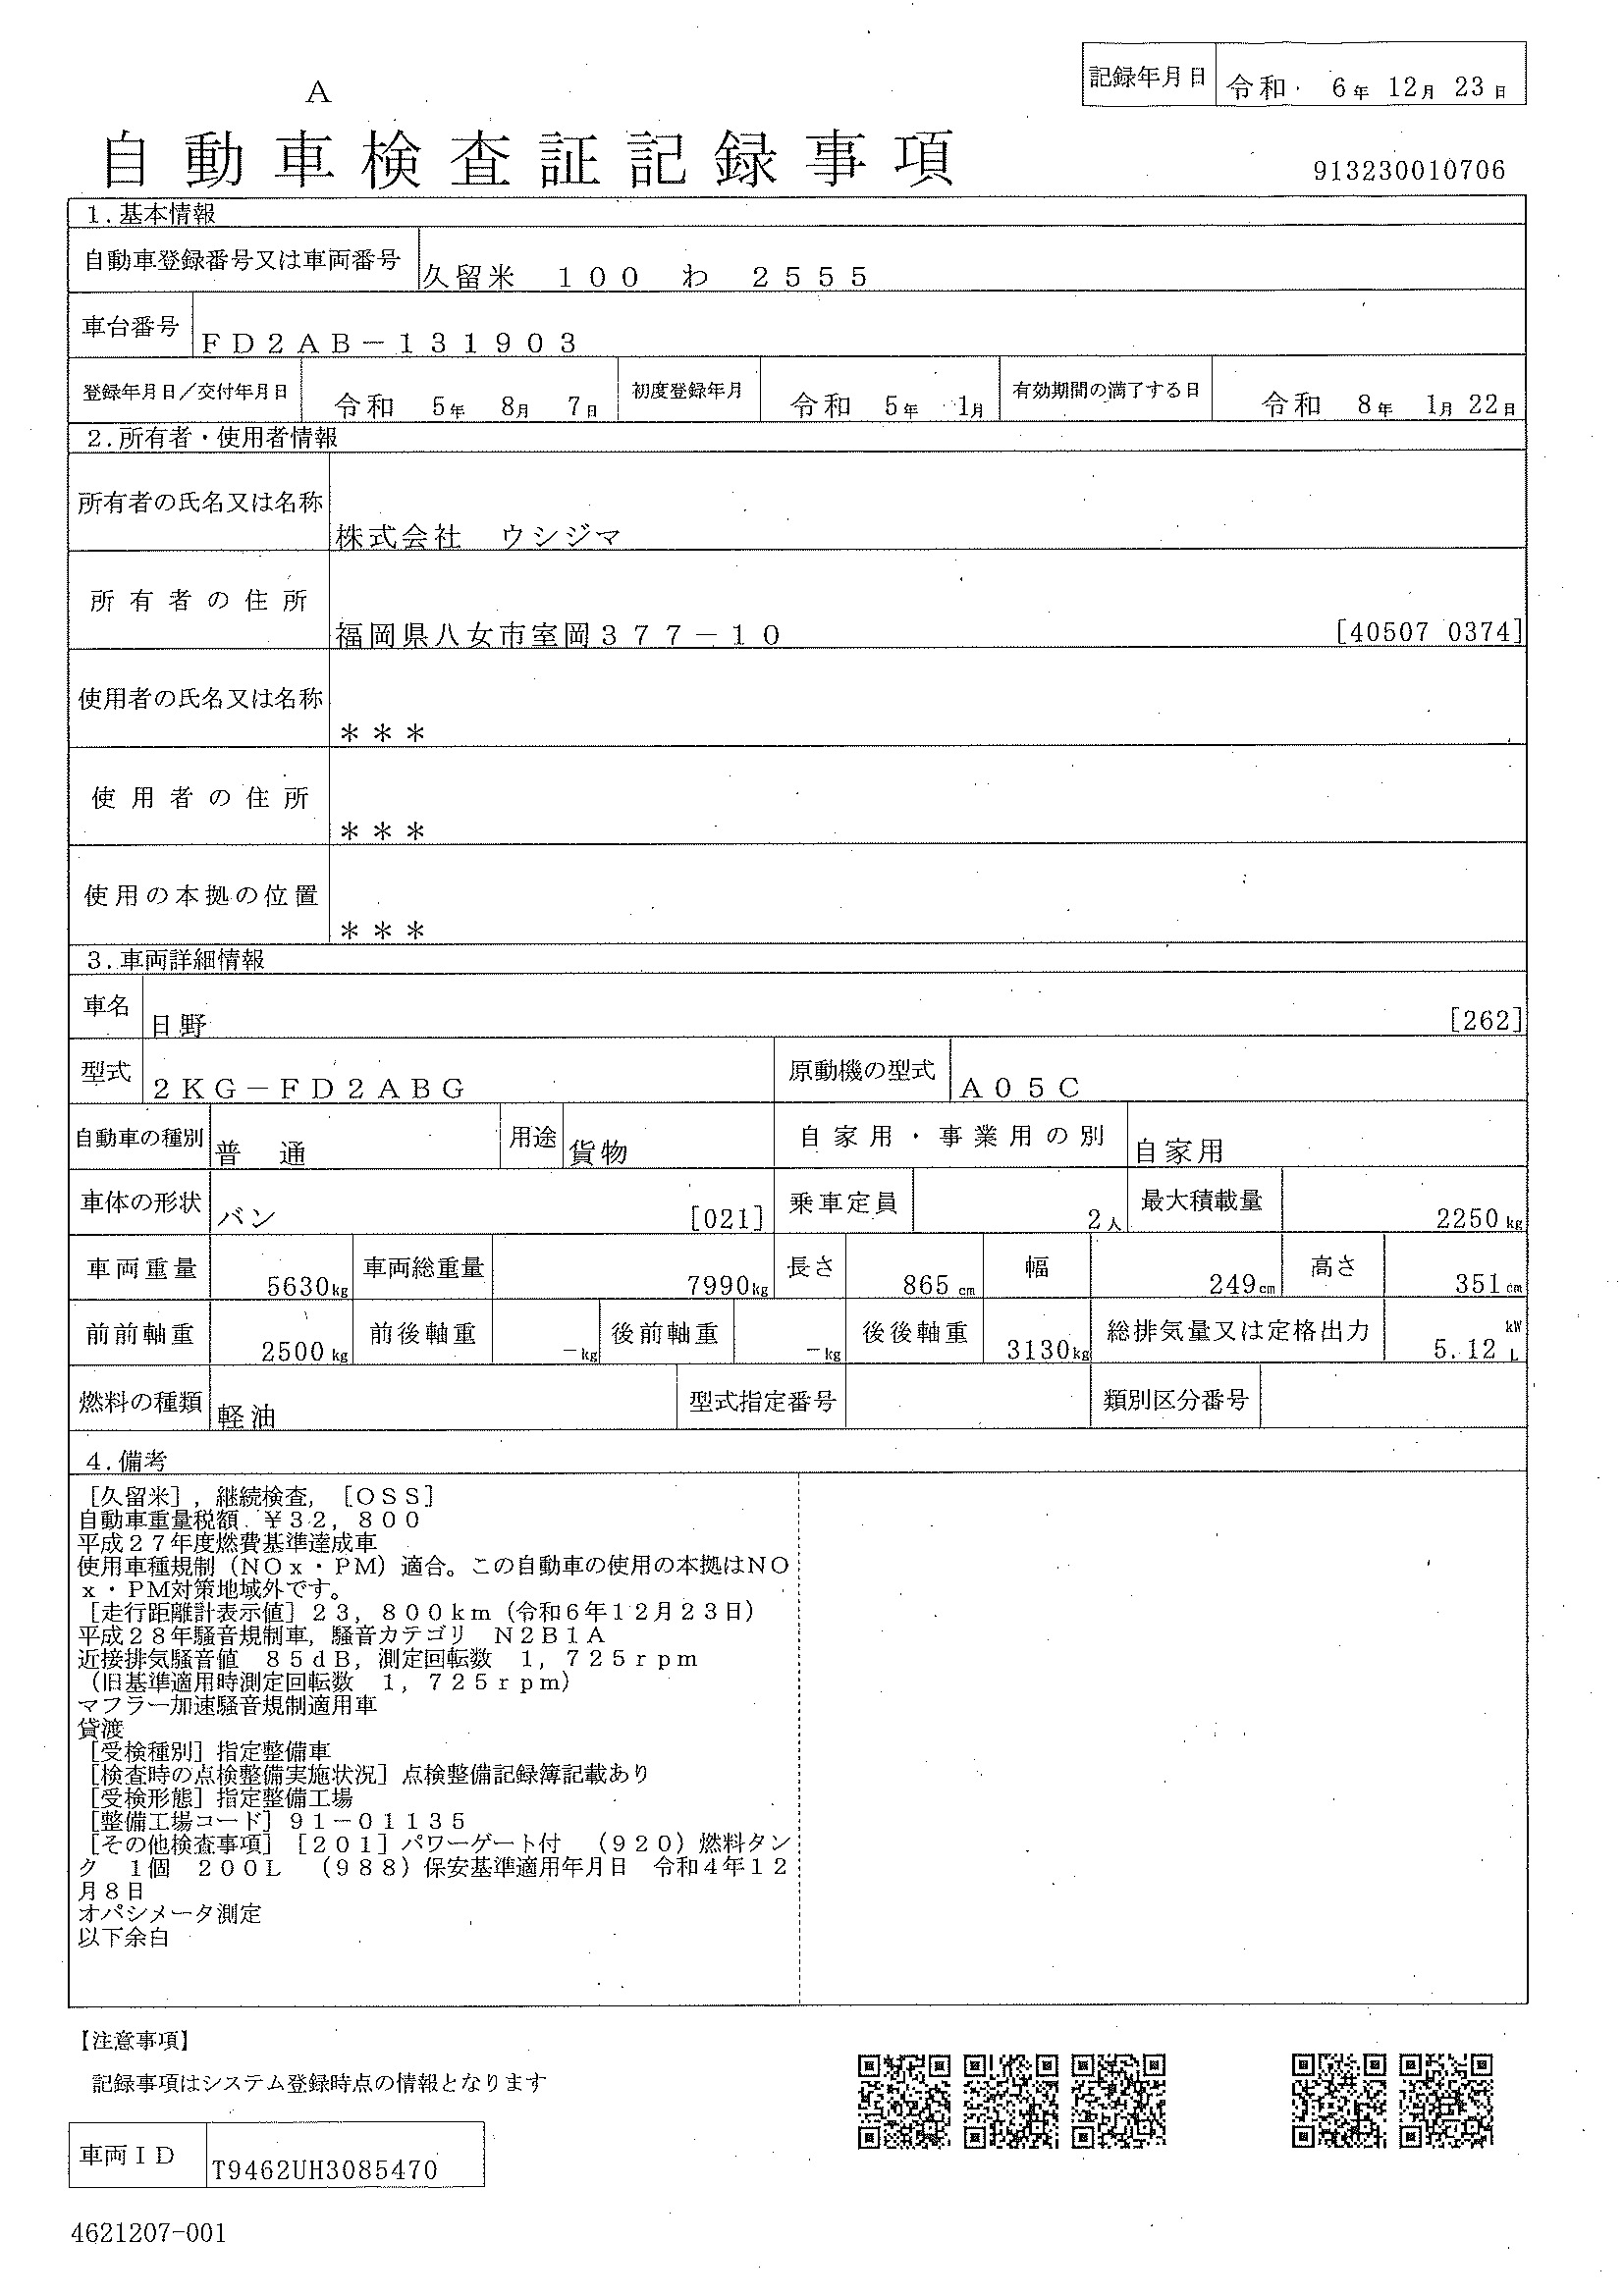 記録年月日 令和 6年 12月 23日
A
自動車検査証記録事項
913230010706
1.基本情報
自動車登録番号又は車両番号 久留米 100 わ 2555
車台番号 FD2AB-131903
登録年月日/交付年月日 令和 5年 8月 7日 初度登録年月 令和 5年 1月 有効期間の満了する日 令和 8年 1月 22日
2.所有者・使用者情報
所有者の氏名又は名称 株式会社 ウシジマ
所有者の住所 福岡県八女市室岡377-10 [40507 0374]
使用者の氏名又は名称 ***
使用者の住所 ***
使用の本拠の位置 ***
3.車両詳細情報
車名 日野 [262]
型式 2KG-FD2ABG 原動機の型式 A05C
自動車の種別 普通 用途 貨物 自家用・事業用の別 自家用
車体の形状 バン [021] 乗車定員 2人 最大積載量 2250kg
車両重量 5630kg 車両総重量 7990kg 長さ 865cm 幅 249cm 高さ 351cm
前前軸重 2500kg 前後軸重 -kg 後前軸重 -kg 後後軸重 3130kg 総排気量又は定格出力 5.12 kW L
燃料の種類 軽油 型式指定番号 類別区分番号
4.備考
[久留米],継続検査,[OSS]
自動車重量税額 ¥32,800
平成27年度燃費基準達成車
使用車種規制(NOx・PM)適合。この自動車の使用の本拠はNO
x・PM対策地域外です。
[走行距離計表示値]23,800km(令和6年12月23日)
平成28年騒音規制車,騒音カテゴリ N2B1A
近接排気騒音値 85dB,測定回転数 1,725rpm
(旧基準適用時測定回転数 1,725rpm)
マフラー加速騒音規制適用車
貸渡
[受検種別]指定整備車
[検査時の点検整備実施状況]点検整備記録簿記載あり
[受検形態]指定整備工場
[整備工場コード]91-01135
[その他検査事項][201]パワーゲート付 (920)燃料タン
ク 1個 200L (988)保安基準適用年月日 令和4年12
月8日
オパシメータ測定
以下余白
【注意事項】
記録事項はシステム登録時点の情報となります
車両ID T9462UH3085470
4621207-001